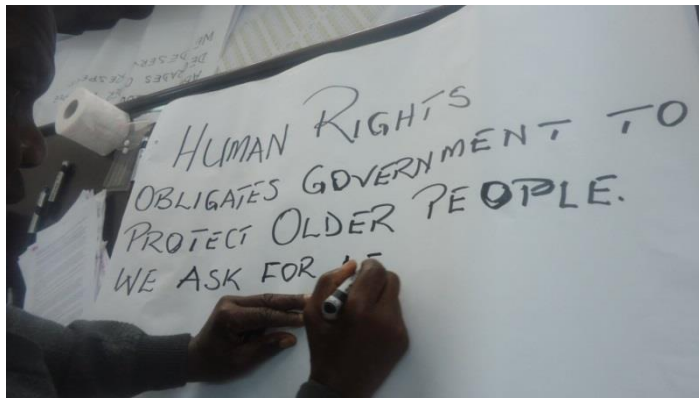 HUMAN RIGHTS
OBLIGATES GOVERNMENT TO
PROTECT OLDER PEOPLE.
WE ASK FOR
WE DESERV